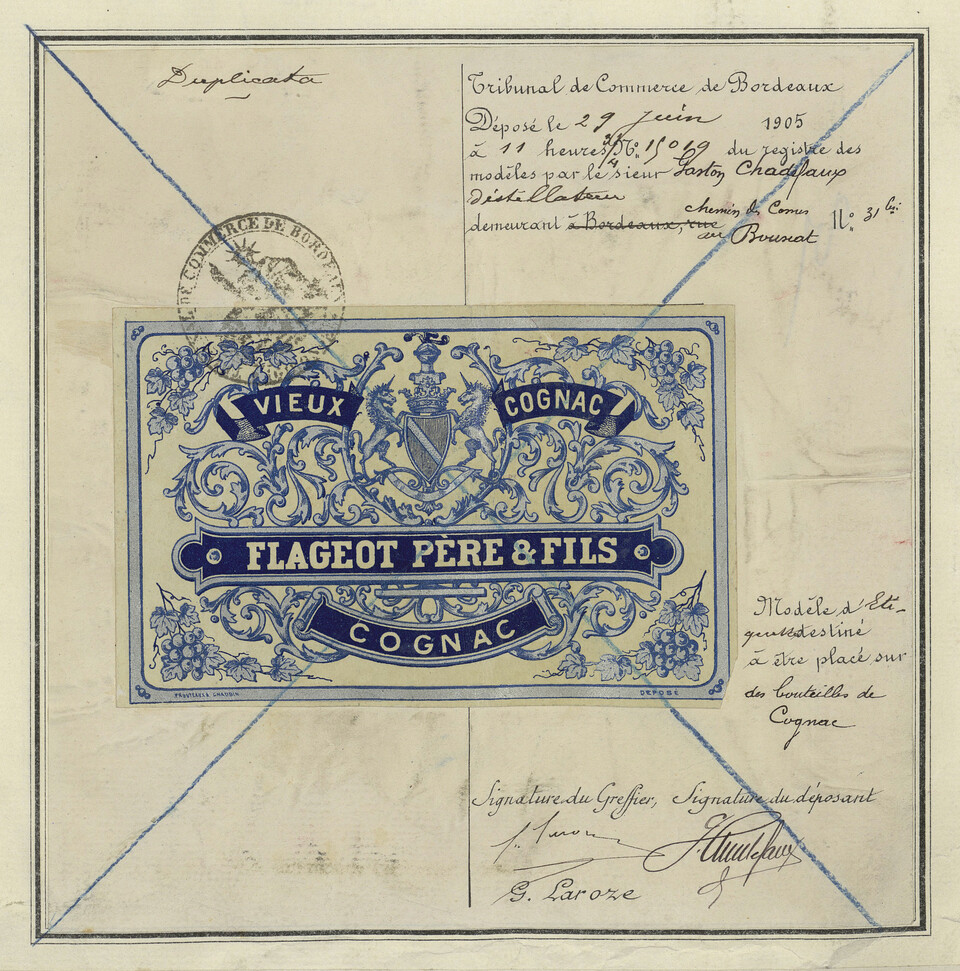 Duplicata
Tribunal de Commerce de Bordeaux
Déposé le 29 Juin 1905
à 11 heures 3/4 N° 15019 du registre des
modèles par le sieur Gaston Chadefaux
distillateur
chemin de
demeurant à Bordeaux, rue N° 31 bis
au Bouscat
DE COMMERCE DE BORDEAUX
VIEUX COGNAC
FLAGEOT PÈRE & FILS
COGNAC
DEPOSÉ
Modèle d'Eti-
quette destiné
à être placé sur
des bouteilles de
Cognac
Signature du Greffier, Signature du déposant
G. Laroze